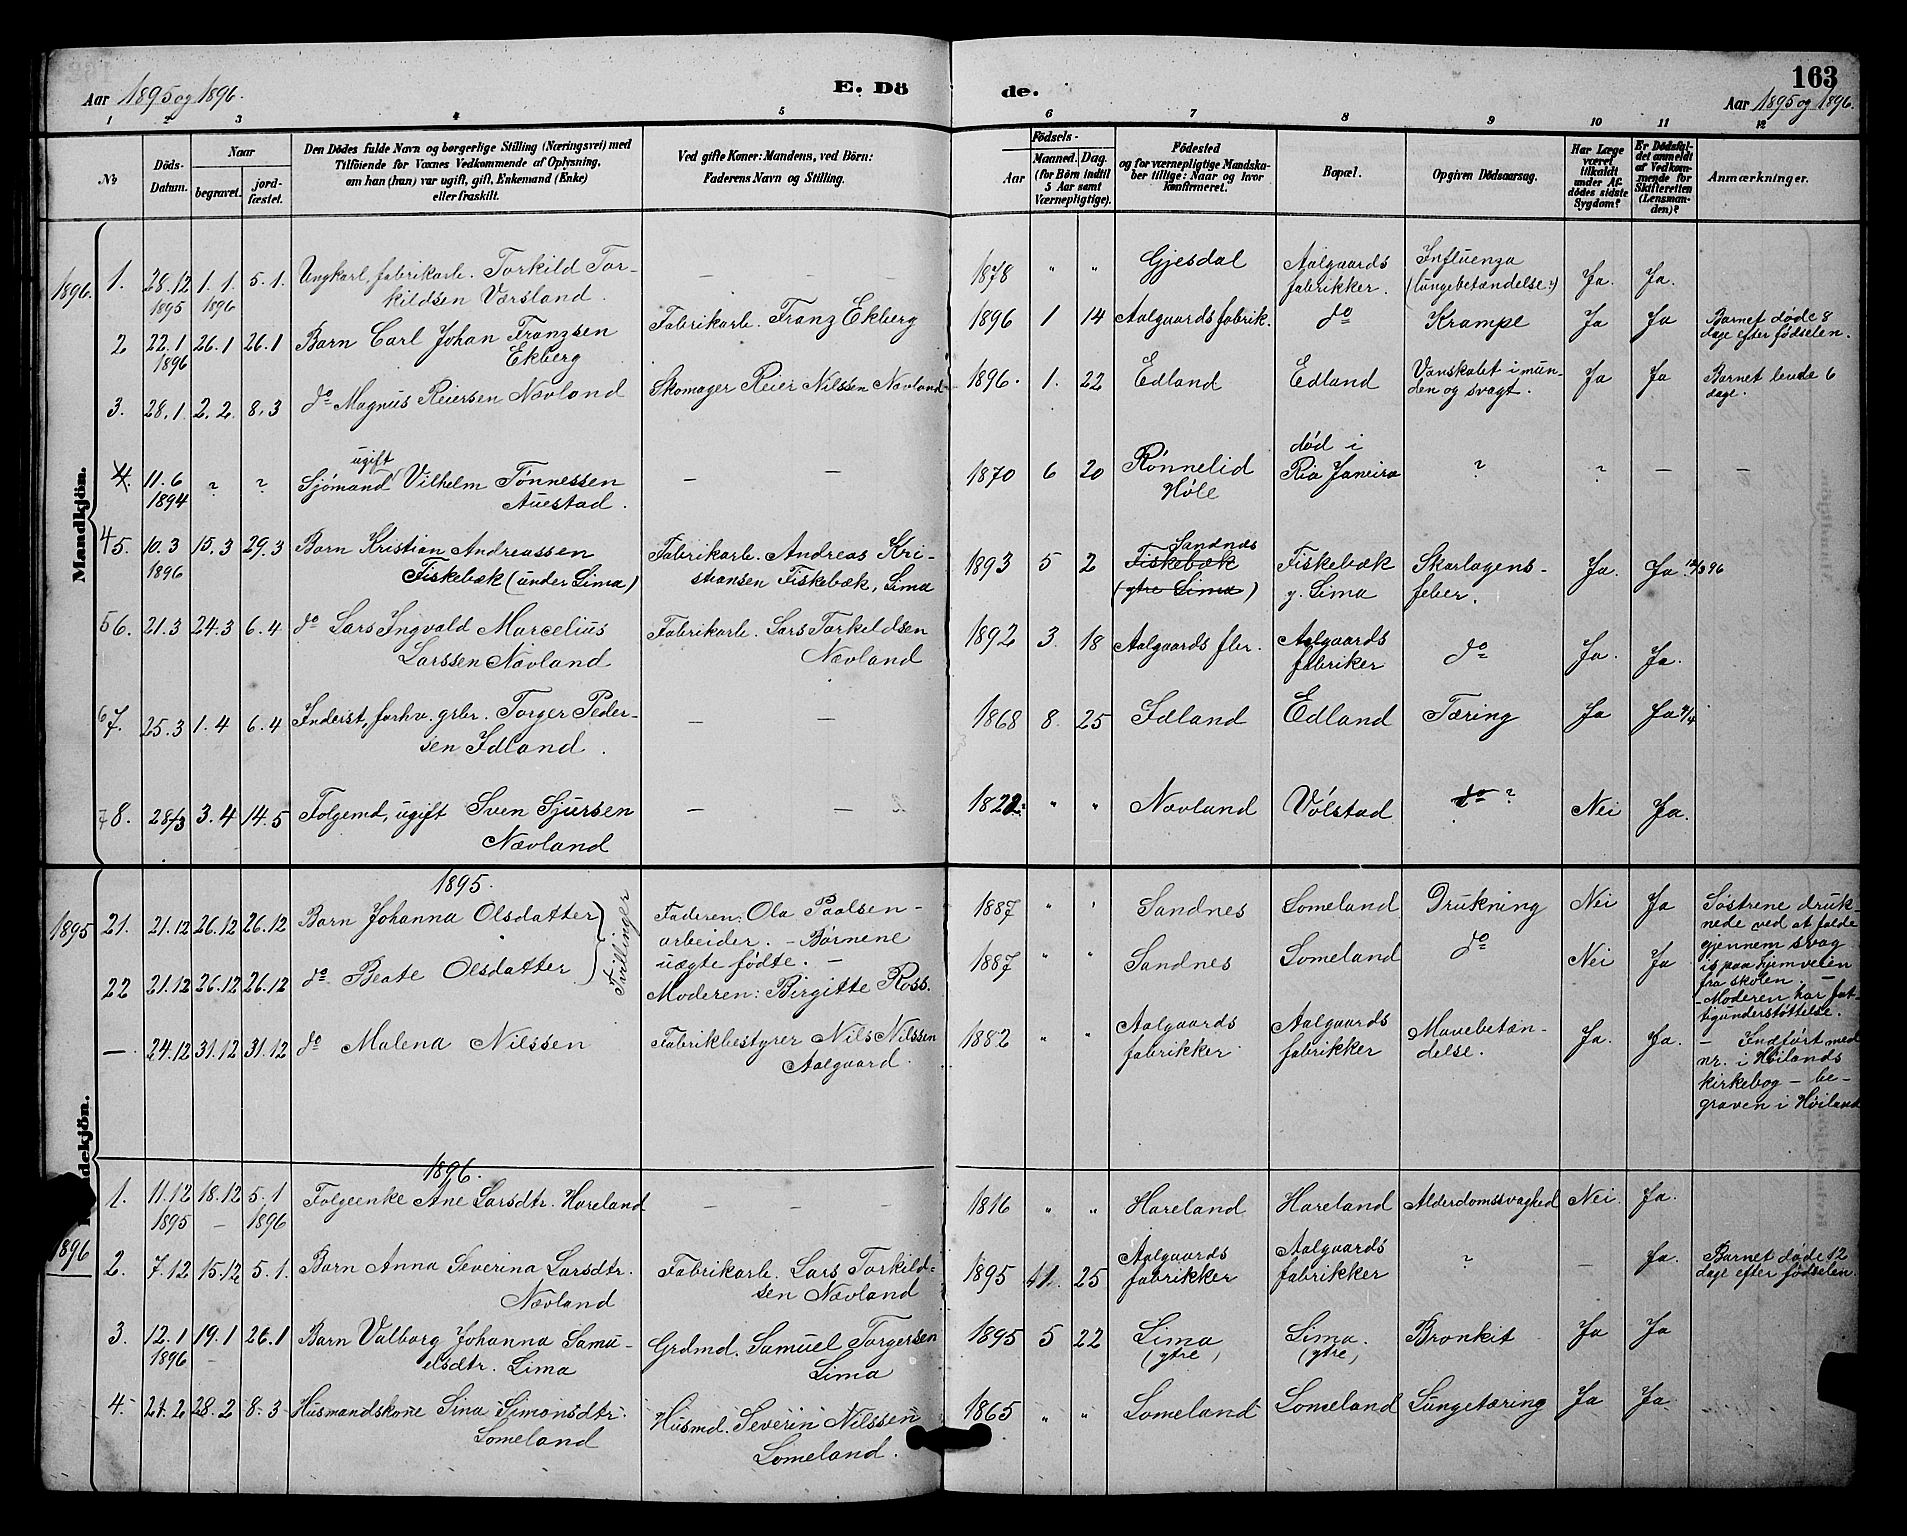 163
Aar 1895 og 1896.
E. Dö
de.
Aar 1895 og 1896.
1 2 3 4 5 6 7 8 9 10 11 12
No
Döds-
Datum.
Naar
begravet.
jord-
fæstet.
Den Dödes fulde Navn og borgerlige Stilling (Næringsvei) med
Tilföiende for Voxnes Vedkommende af Oplysning,
om han (hun) var ugift, gift, Enkemand (Enke)
eller fraskilt.
Ved gifte Koner: Mandens, ved Börn:
Faderens Navn og Stilling.
Födsels-
Aar
Maaned. Dag.
(for Börn indtil
5 Aar samt
Værnepligtige).
Födested
og for værnepligtige Mandska-
ber tillige: Naar og hvor
konfirmeret.
Bopæl.
Opgiven Dödsaarsag.
Har Læge
været
tilkaldt
under Af-
dödes sidste
Sygdom?
Er Dödsfal-
det anmeldt
af Vedkom-
mende for
Skifteretten
(Lensman-
den)?
Anmærkninger.
Mandkjön.
1896.
1. 28.12 1.1. 5.1. Ungkarl, fabrikarb. Torkild Tor- — — 1878 " " Gjesdal Aalgaards Influenza Ja. Ja.
1895 1896 kildsen Værsland. fabrikker. (lungebetændelse?)
2 22.1 26.1 26.1 Barn Carl Johan Franzsen Fabrikarb. Franz Ekberg 1896 1 14 Aalgaards fabrik. do Krampe Ja Ja Barnet døde 8
1896 Ekberg dage efter fødselen.
3. 28.1. 2.2. 8.3 do Magnus Reiersen Nævland Skomager Reier Nilssen Nævland 1896. 1. 22 Edland Edland Vanskabt i mun- Ja Ja Barnet levde 6
den og svagt. dage.
ugift
4. 11.6 ? ? Sjømand Vilhelm Tønnessen — — 1870 6 20 Rønnelid død i ? ? — —
1894 Auestad. Høle Rio Janeiro
4 5. 10.3 15.3 29.3 Barn Kristian Andreassen Fabrikarb. Andreas Kri- 1893 5 2 Sandnæs Fiskebæk Skarlagens- Ja. Ja 12/3 96
1896 Fiskebæk (under Lima) stiansen Fiskebæk, Lima Fiskebæk (ytre Lima) y. Lima feber.
5 6. 21.3 24.3 6.4 do Lars Ingvald Marcelius Fabrikarb. Lars Torkildsen 1892 3. 18 Aalgaards fbr. Aalgaards do Ja. Ja.
Larssen Nævland Nævland fabriker
6 7. 25.3 1.4 6.4 Inderst, forhv. grbr. Torger Peder- — — 1868 8. 25 Idland Edland Tæring Ja Ja 9/4
sen Idland.
7 8. 28/3 3.4 14.5 Folgemd, ugift Sven Sjursen — — " " Nævland Vølstad do ? Nei Ja.
Nævland
1895.
1895
21. 21.12 26.12 26.12 Barn Johanna Olsdatter Faderen: Ola Paalsen - 1887 " " Sandnes Lomeland Drukning Nei Ja Søstrene druk-
Tvillinger arbeider. - Børnene nede ved at falde
uægte fødte. — gjennem svag
22 21.12 26.12 26.12 do Beate Olsdatter Moderen: Birgitte Ross. 1887 " " Sandnes Lomeland do Nei Ja is paa hjemveien
fra skolen. —
- Moderen har fat-
tigunderstøttelse.
— 24.12 31.12 31.12 do Malena Nilssen Fabrikbestyrer Nils Nilssen 1882 " " Aalgaards Aalgaards Mavebetæn- Ja. Ja. - Indført med
Aalgaard. fabrikker fabrikker delse. nr. i Høilands
kirkebog - be-
graven i Høiland
1896.
1. 11.12 18.12 5.1 Folgeenke Ane Larsdtr. Hareland — — — 1816 " " Hareland Hareland Alderdomssvaghed Nei. Ja.
1895 — 1896
1896
2. 7.12 15.12 5.1. Barn Anna Severina Larsdtr. Fabrikarb. Lars Torkild- 1895 11. 25 Aalgaards Aalgaards ? — Ja. Barnet døde 12
Nævland sen Nævland fabrikker fabrikker dage efter fødselen.
3. 12.1 19.1 26.1 Barn Valborg Johanna Samu- Grdmd. Samuel Torgersen 1895 5 22 Lima Lima. Bronkit Ja Ja
1896 — elsdtr. Lima Lima (ytre) (ytre)
4. 21.2 28.2 8.3 Husmandskone Sina Simonsdtr. Husmd. Severin Nilssen 1865 " " Lomeland Lomeland Lungetæring Ja Ja
Lomeland Lomeland.